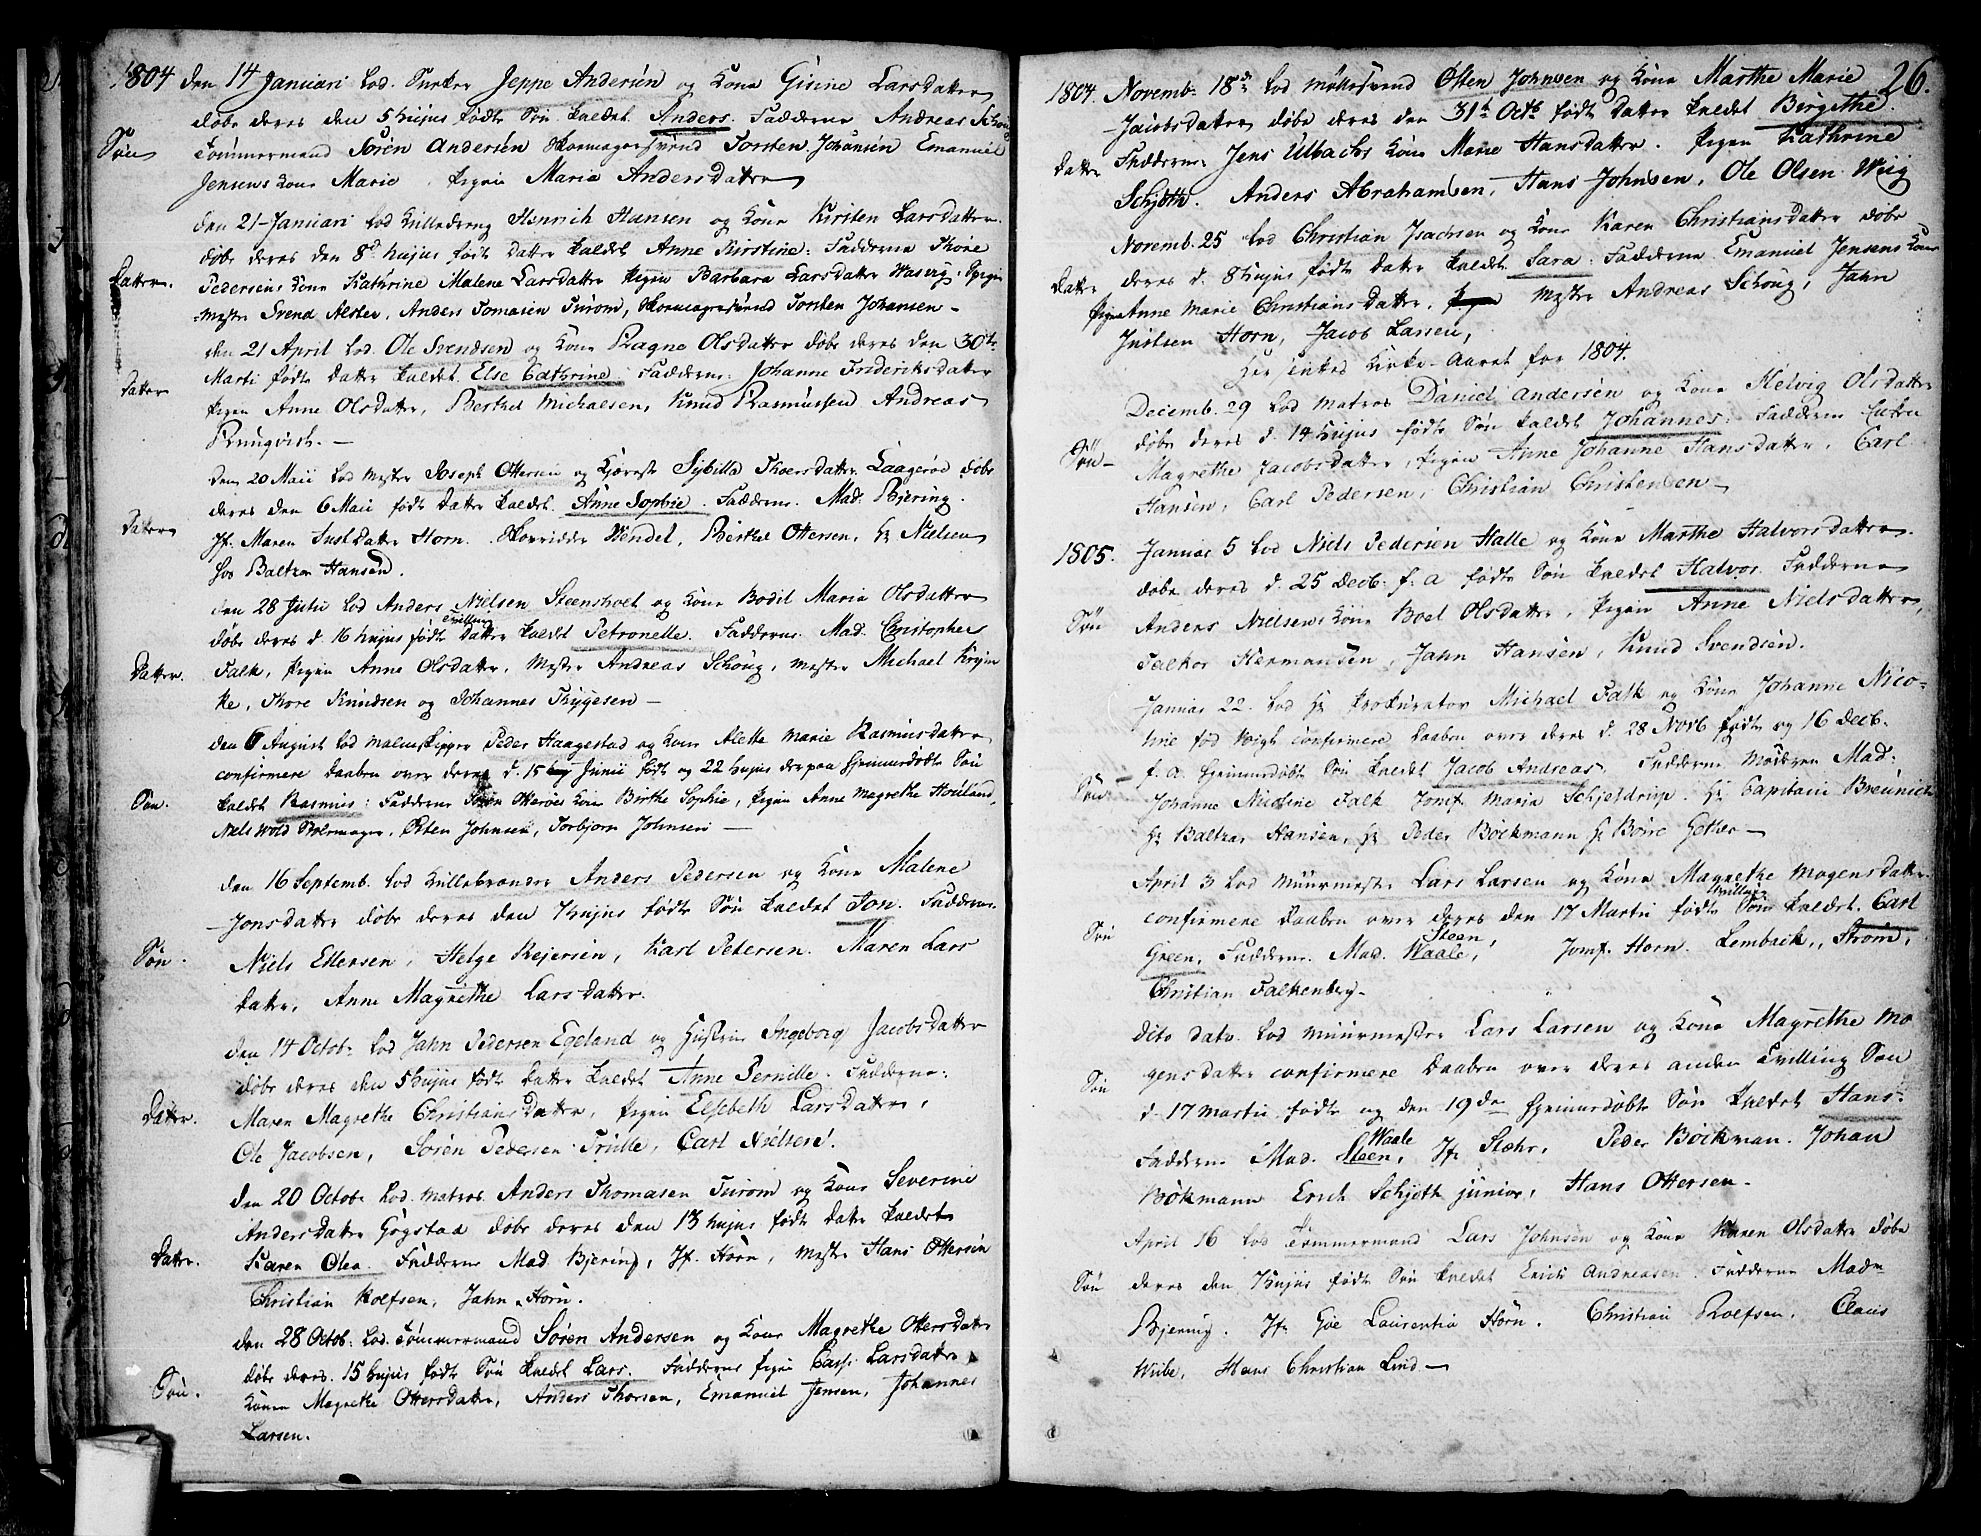 1804 den 14 Januari lod Sneker Jeppe Andersen og Kone Gisine Larsdatter
døbe deres den 5 hujus fødte Søn kaldet Anders. Fadderne Andreas Schoug
Søn
Tömmermand Sören Andersen Skomagersvend Torsten Johansen Emanuel
Jensens Kone Marie, Pigen Maria Andersdatter
den 21 Januari lod Henrich Hansen og Kone Kirsten Larsdatter
døbe deres den 8de hujus født Datter kaldet Anne Kirstine: Fadderne Thore
Datter.
Pedersens Kone Kathrine Malene Larsdatter Pigen Barbara Larsdatter Pigen
Mester Svend Alster, Anders Tomasen Turom, Skomagersvend Torsten Johansen -
den 21 April lod Ole Svendsen og Kone Ragne Olsdatter døbe deres den 30te
Marti fødte Datter kaldet Else Cathrine: Fadderne: Johanne Frideriksdatter
Datter
Pigen Anne Olsdatter, Berthel Michaelsen, Knud Rasmussen Andreas
Runqvist. -
den 20 Maii lod Mester Joseph Ottersen og Kjæreste Sybilla Thorsdatter Laagerød døbe
deres den 6 Maii fødte Datter kaldet Anne Sophie. Fadderne. Mad. Bjering.
Datter
Jf. Maren Justdatter Horn. Wendel, Berthel Ottersen, Hr Nielsen
hos Baltzar Hansen.
den 28 Julii lod Anders Nielsen Steensholt og Kone Bodil Maria Olsdatter
døbe deres d. 16 hujus fødte tvilling Datter kaldet Petronelle. Fadderne. Mad. Christopher
Datter.
Falk, Pigen Anne Olsdatter, Mester Andreas Schoug, Mester Michael
ke, Thore Knudsen og Johannes Trygesen -
den 6 August lod Peder Haagestad og Kone Alette Marie Rasmusdatter
confirmere Daaben over deres d. 15 Junii født og 22 hujus derpaa hjemmedøbte Søn
Søn.
kaldet Rasmus: Fadderne Kone Birthe Sophie, Pigen Anne Magrethe
Niels Wold, Østen Johnsen, Torbjorn Johnsen -
den 16 Septemb. lod Anders Pedersen og Kone Malene
Jonsdatter döbe deres den 7 hujus fødte Søn kaldet Jon. Fadderne.
Søn.
Niels Ellensen, Helge Rejersen, Karl Petersen. Maren Lars
datter, Anne Magrethe Larsdatter.
den 14 Octobr lod Jahn Pedersen Egeland og Hustrue Ingeborg Jacobsdatter
døbe deres den 5 hujus fødte Datter kaldet Anne Pernille. Fadderne:
Datter.
Maren Magrethe Christiansdatter, Pigen Elsebeth Larsdatter,
Ole Jacobsen, Søren Pedersen Trulle, Carl Nielsen.
den 20 Octobr lod Matros Anders Thomasen Turom og Kone Severine
Andersdatter Gogstad døbe deres den 13 hujus født Datter kaldet
Datter.
Karen Olea. Fadderne Mad Bjering, Jf. Horn, Mester Hans Ottersen
Christian Rolfsen, Jahn Horn.
den 28 Octob: lod Tömmermand Sören Andersen og Kone Magrethe Ottersdatter
døbe deres 15 hujus fødte Søn kaldet Lars. Fadderne Pigen Larsdatter
Søn.
Konen Magrethe Ottersdatter, Anders Thorsen, Emanuel Jensen, Johannes
Larsen.
26.
1804. Novemb. 18de lod Møllersvend Østen Johnsen og Kone Marthe Marie
Jacobsdatter døbe deres den 31te Octb født Datter kaldet Birgithe.
Datter
Fadderne: Jens Ulbachs Kone Marie Hansdatter. Pigen Kathrine
Schjøth. Anders Abrahamsen, Hans Johnsen, Ole Olsen Wiig
Novemb. 25 lod Christian Isachsen og Kone Karen Christiansdatter døbe
deres d. 8 hujus fødte Datter kaldet Sara: Fadderne. Emanuel Jensens Kone
Datter
Pigen Anne Marie Christiansdatter, Mester Andreas Schoug, Jahn
Justsen Horn, Jacob Larsen,
Her endes Kirke-Aaret for 1804.
Decemb. 29 lod Matros Daniel Andersen og Kone Helvig Olsdatter
døbe deres d. 14 hujus fødte Søn kaldet Johannes: Fadderne Enken
Søn -
Magrethe Jacobsdatter, Pigen Anne Johanne Hansdatter, Carl
Hansen, Carl Pedersen, Christian Christensen -
1805. Januar 5 lod Niels Pedersen Halle og Kone Marthe Halvorsdatter
døbe deres d. 25 Decb. f. a. fødte Søn kaldet Halvor. Fadderne
Søn
Anders Nielsens Kone Boel Olsdatter, Pigen Anne Nielsdatter,
Falkor Hermansen, Jahn Hansen, Knud Svendsen.
Januar 22. lod Hr Prokurator Michael Falk og Kone Johanne Nico-
line fød Voigt confirmere Daaben over deres d. 28 Novb fødte og 16 Decb.
f. a. hjemmedøbte Søn kaldet Jacob Andreas, Fadderne Moderen Mad:
Søn
Johanne Nicoline Falk Jomf. Maria Schjeldrup. Hr Capitain Breunich
Hr Baltzar Hansen, Hr Peder Böckmann Hr Boire Gether -
April 3 lod Muurmester Lars Larsen og Kone Magrethe Mogensdatter
confirmere Daaben over deres den 17 Martii fødte tvilling Søn kaldet. Carl
Søn
Green, Fadderne. Mad. Waale, Steen, Jomf. Horn. Lembach, Strøm,
Christian Falkenberg -
dito dato lod Muurmester Lars Larsen og Kone Magrethe Mo
gensdatter confirmere Daaben over deres anden Tvilling Søn
Søn
d. 17 Martii fødte og den 19de hjemmedøbte Søn kaldet Hans:
Fadderne Mad. Steen, Waale Jfr Stæhr, Peder Böckman. Johan
Bökmann Erich Schjøth junior, Hans Ottersen -
April 16 lod Tømmermand Lars Johnsen og Kone Karen Olsdatter døbe
deres den 7 hujus fødte Søn kaldet Erich Andreasen. Fadderne Madm
Søn
Bjering. Jfr Gøe Laurentia Horn. Christian Rolfsen, Claus
Wibe, Hans Christian Lind -